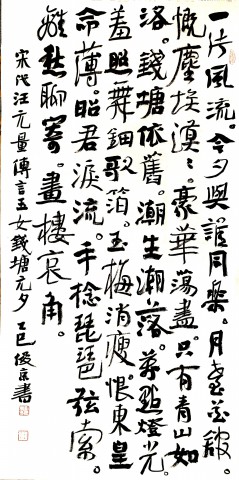 一片風流。今夕與誰同樂。月臺花館。
慨塵埃漠漠。豪華蕩盡。只有青山如
洛。錢塘依舊。潮生潮落。萬點燈光。
羞照舞鈿歌箔。玉梅消瘦。恨東皇
命薄。昭君淚流。手捻琵琶弦索。
離愁聊寄。畫樓哀角。
宋代汪元量傳言玉女錢塘元夕 乙巳 俊京書